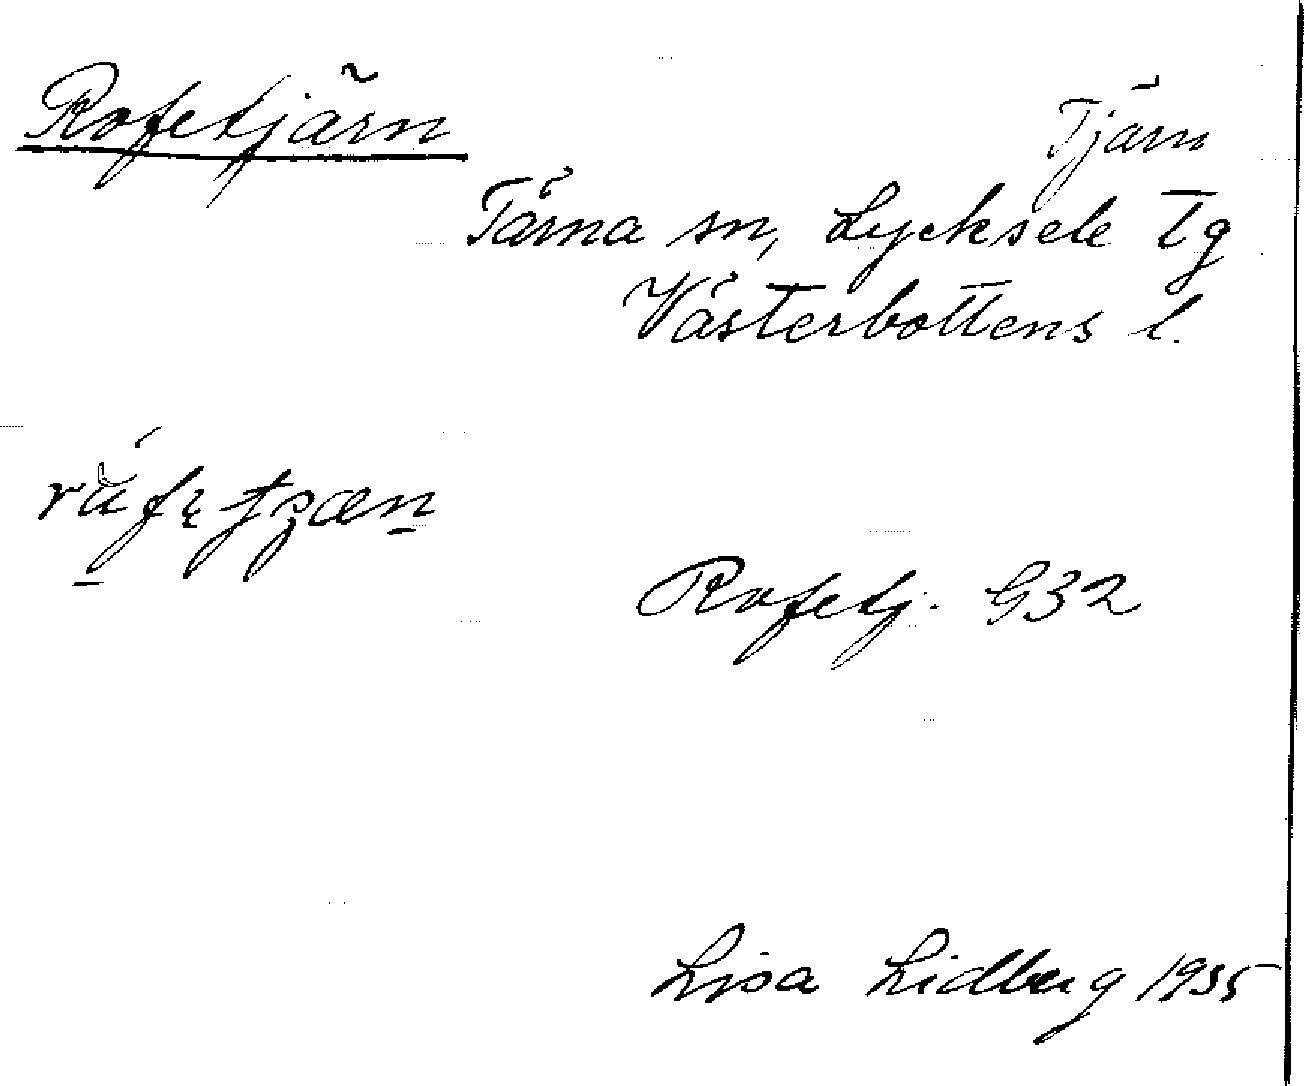 Rofetjärn
Tjärn
Tärna sn, Lycksele Tg
Västerbottens l.
Rofetj. G32
Lisa Lidberg 1935